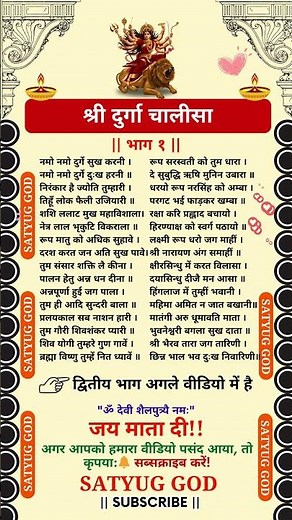 श्री दुर्गा चालीसा
|| भाग १ ||
नमो नमो दुर्गे सुख करनी ।
नमो नमो दुर्गे दुःख हरनी ॥
निरंकार है ज्योति तुम्हारी ।
तिहूँ लोक फैली उजियारी ॥
शशि ललाट मुख महाविशाला।
नेत्र लाल भृकुटि विकराला ॥
रूप मातु को अधिक सुहावे ।
दरश करत जन अति सुख पावे॥
तुम संसार शक्ति लै कीना ।
पालन हेतु अन्न धन दीना ॥
अन्नपूर्णा हुई जग पाला ।
तुम ही आदि सुन्दरी बाला ॥
प्रलयकाल सब नाशन हारी ।
तुम गौरी शिवशंकर प्यारी ॥
शिव योगी तुम्हरे गुण गावें ।
ब्रह्मा विष्णु तुम्हें नित ध्यावें ॥
रूप सरस्वती को तुम धारा ।
दे सुबुद्धि ऋषि मुनिन उबारा ॥
धरयो रूप नरसिंह को अम्बा ।
परगट भई फाड़कर खम्बा ॥
रक्षा करि प्रह्लाद बचायो ।
हिरण्याक्ष को स्वर्ग पठायो ॥
लक्ष्मी रूप धरो जग माहीं ।
श्री नारायण अंग समाहीं ॥
क्षीरसिन्धु में करत विलासा ।
दयासिन्धु दीजै मन आसा ॥
हिंगलाज में तुम्हीं भवानी ।
महिमा अमित न जात बखानी॥
मातंगी अरु धूमावति माता ।
भुवनेश्वरी बगला सुख दाता ॥
श्री भैरव तारा जग तारिणी ।
छिन्न भाल भव दुःख निवारिणी॥
SATYUG GOD
SATYUG GOD
SATYUG GOD
द्वितीय भाग अगले वीडियो में है
"ॐ देवी शैलपुत्र्यै नमः"
जय माता दी!!
अगर आपको हमारा वीडियो पसंद आया, तो
कृपया:🔔 सब्सक्राइब करें!
SATYUG GOD
|| SUBSCRIBE ||
SATYUG GOD
SATYUG GOD